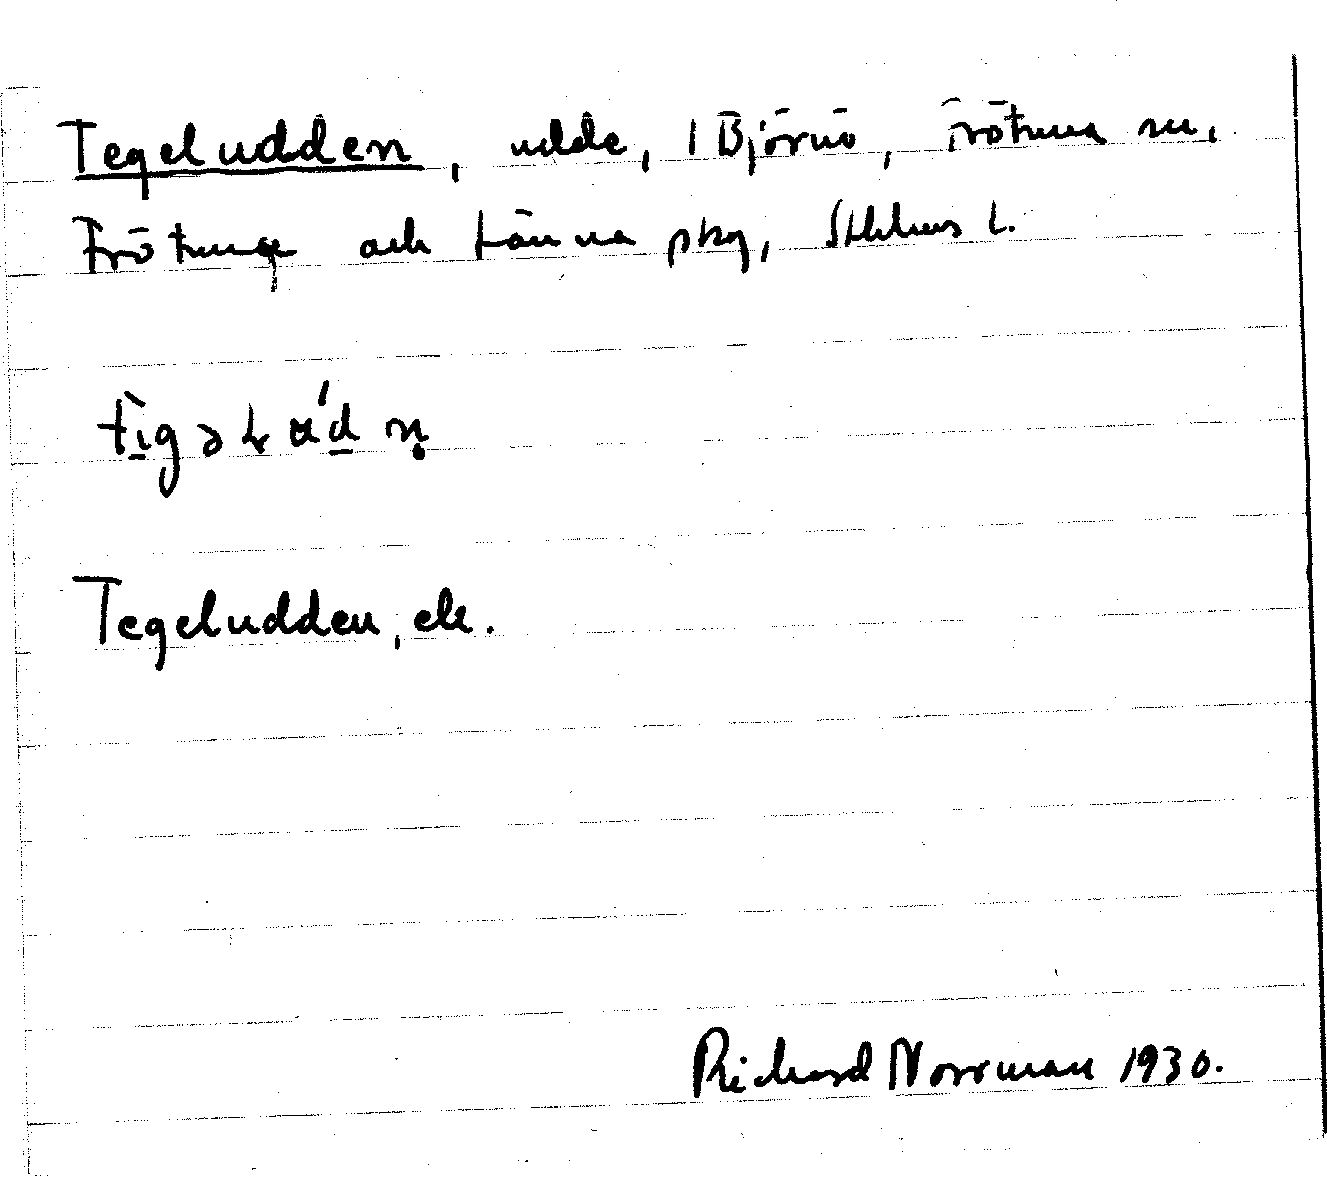 Tegeludden, udde, i Björnö, Frötuna sn,
Frötuna och Länna skg, Sthlms l.
tìgəLu̇́dn̥
Tegeludden, ek.
Richard Norrman 1930.